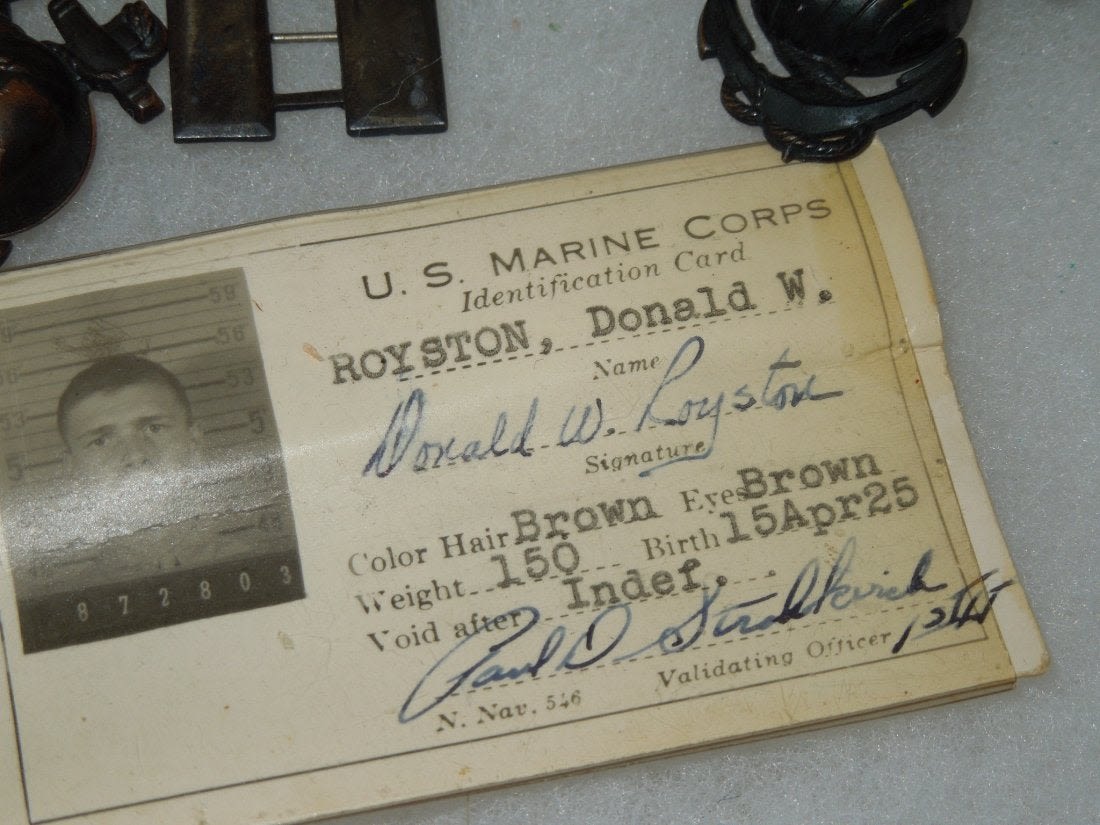 U. S. MARINE CORPS
Identification Card
ROYSTON, Donald W.
Name
Donald W. Royston
Signature
Color Hair Brown Eyes Brown
Weight 150 Birth 15Apr25
Void after Indef.
Paul D
Validating Officer
N. Nav. 546
59
56
53
5
53
5
872803